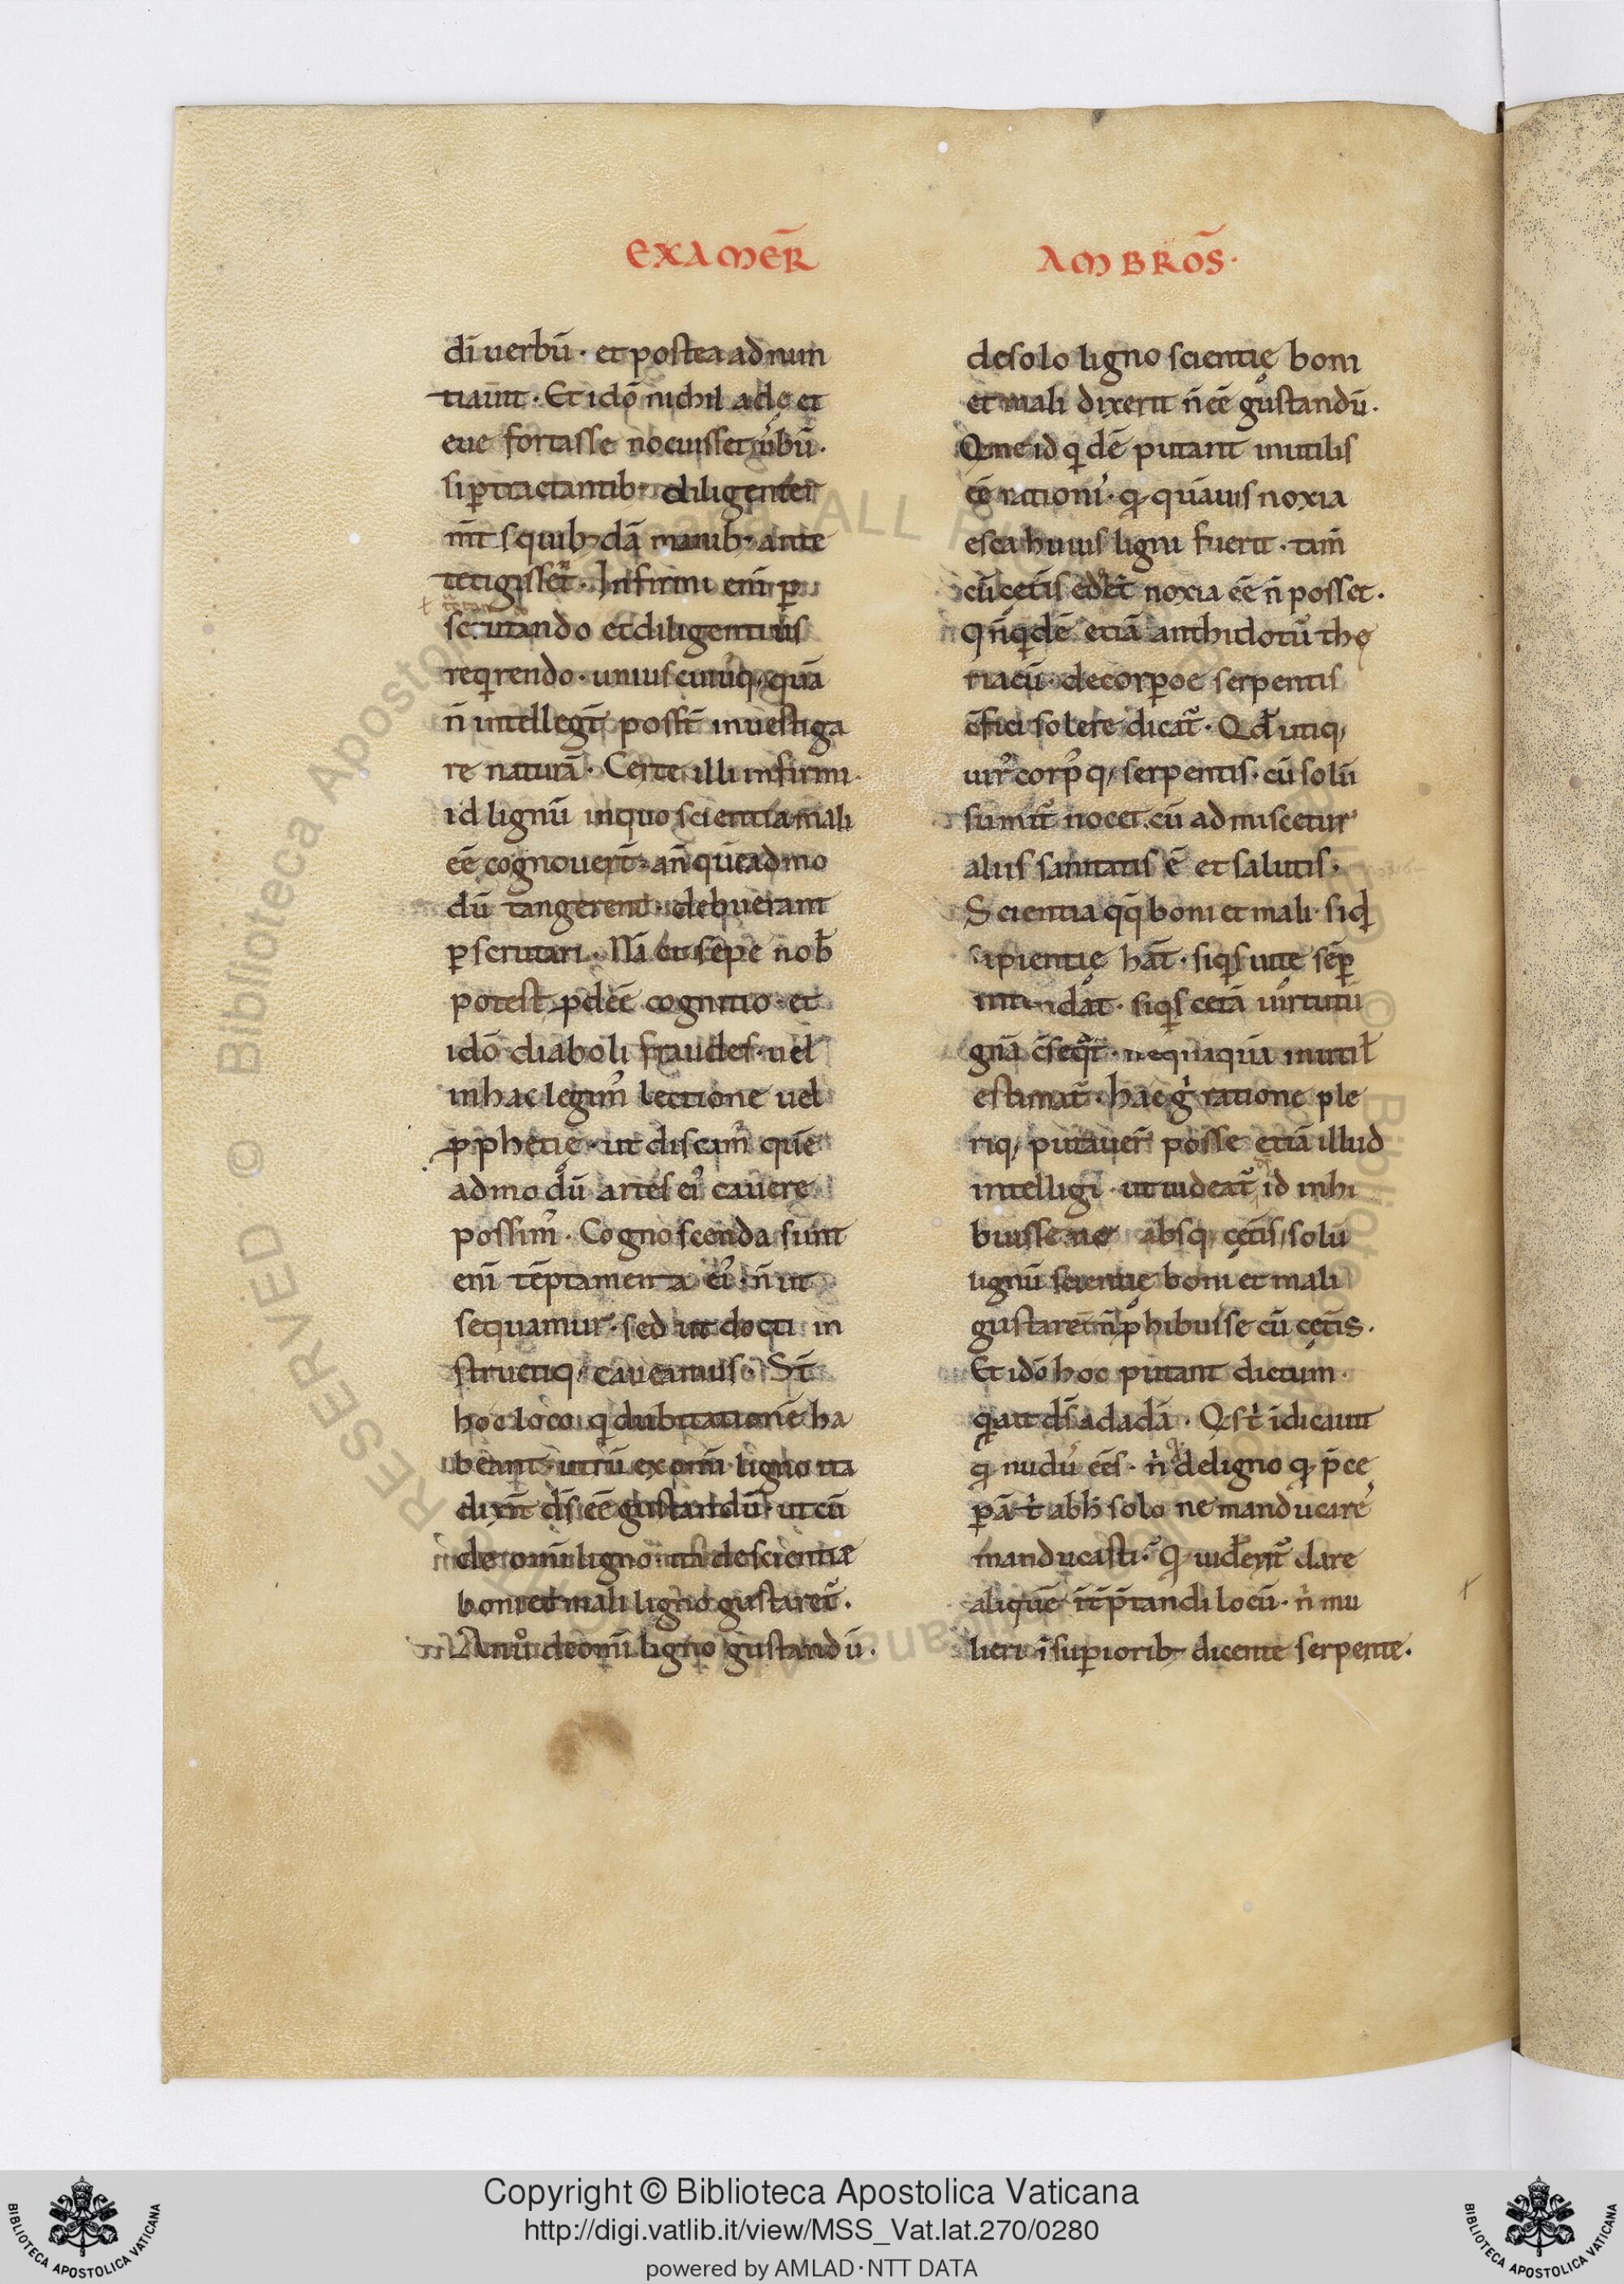 EXAMER̄
AMBROS̄·
dī uerbū· et postea ad nun
tiaūit· Et idō nichil adę et
eue fortasse nocuisset ūbū·
si ꝑtractantib· diligenter
diligentius
reqrendo· unius cuiuꝗ, quā
n̄ intellegt̄ possit inuestiga
re naturā· Certe illi infirmi
id lignū in quo scientia mali
eē cognouerīt an̄ quēadmo
dū tangerent· debuerant
ꝑscrutari· Nā et sepe nob̄
potest ꝓdeē cognitio· et
idō diaboli fraudes· uel
in hac legim᾽ lectione uel
ꝓphetię· ut discam᾽ quē
admodū artes ei᾽ cauere
possim᾽· Cognoscenda sunt
enī tēptamenta ei᾽· n̄ ut
sequamur· sed ut docti in
structiq, caueamus· St̄
hoc loco q dubitationē ha
beant· utrū ex om̄i ligno ita
dixit ds̄ eē gustandū· ut cū
de om̄i ligno· uti de scientia
boni et mali ligno gustaret̄·
An ů de om̄i ligno gustandū·
de solo ligno scientię boni
et mali dixerit n̄ eē gustandū·
Q ne id qdē putant inutilis
eē rationi᾽· q quāuis noxia
esca huius ligni fuerit· tam̄
cū cętis noxia eē n̄ posset·
etiā anthidotū the
riacū· de corꝑoe serpentis
c̄fici solere dicat̄· Qd̄ utiq,
uir᾽ corp᾽ q, serpentis· cū solū
sumit̄ nocet· cū admiscetur
aliis sanitatis ē et salutis·
Scientia qq̄ boni et mali· siq̄
sapientię hāt· siqs uitę sēꝑ
siqs cetā uirtutū
nequaquā inutil̄
estimat̄· hac g̊ ratione ple
riq, putauer̄ posse etiā illud
intelligi· ut uideat̄ id inhi
buisse ne absq, cętis, solū
lignū scientię boni et mali
gustaret n̄ ꝓhibuisse cū cętis·
Et idō hoc putant dictum·
q ait ds̄ ad adā· Qs t̄ īdicauit
q nudu᾽ eēs· n̊ de ligno q p̄ce
ꝑā t̄ ab h̄ solo ne manducare᾽
manducasti· Q uident̄ dare
aliquē it̄ꝑtandi locū· n̊ mu
lieri ī suꝑiorib dicente serpente·
Copyright © Biblioteca Apostolica Vaticana
http://digi.vatlib.it/view/MSS_Vat.lat.270/0280
powered by AMLAD·NTT DATA
BIBLIOTECA APOSTOLICA VATICANA
BIBLIOTECA APOSTOLICA VATICANA